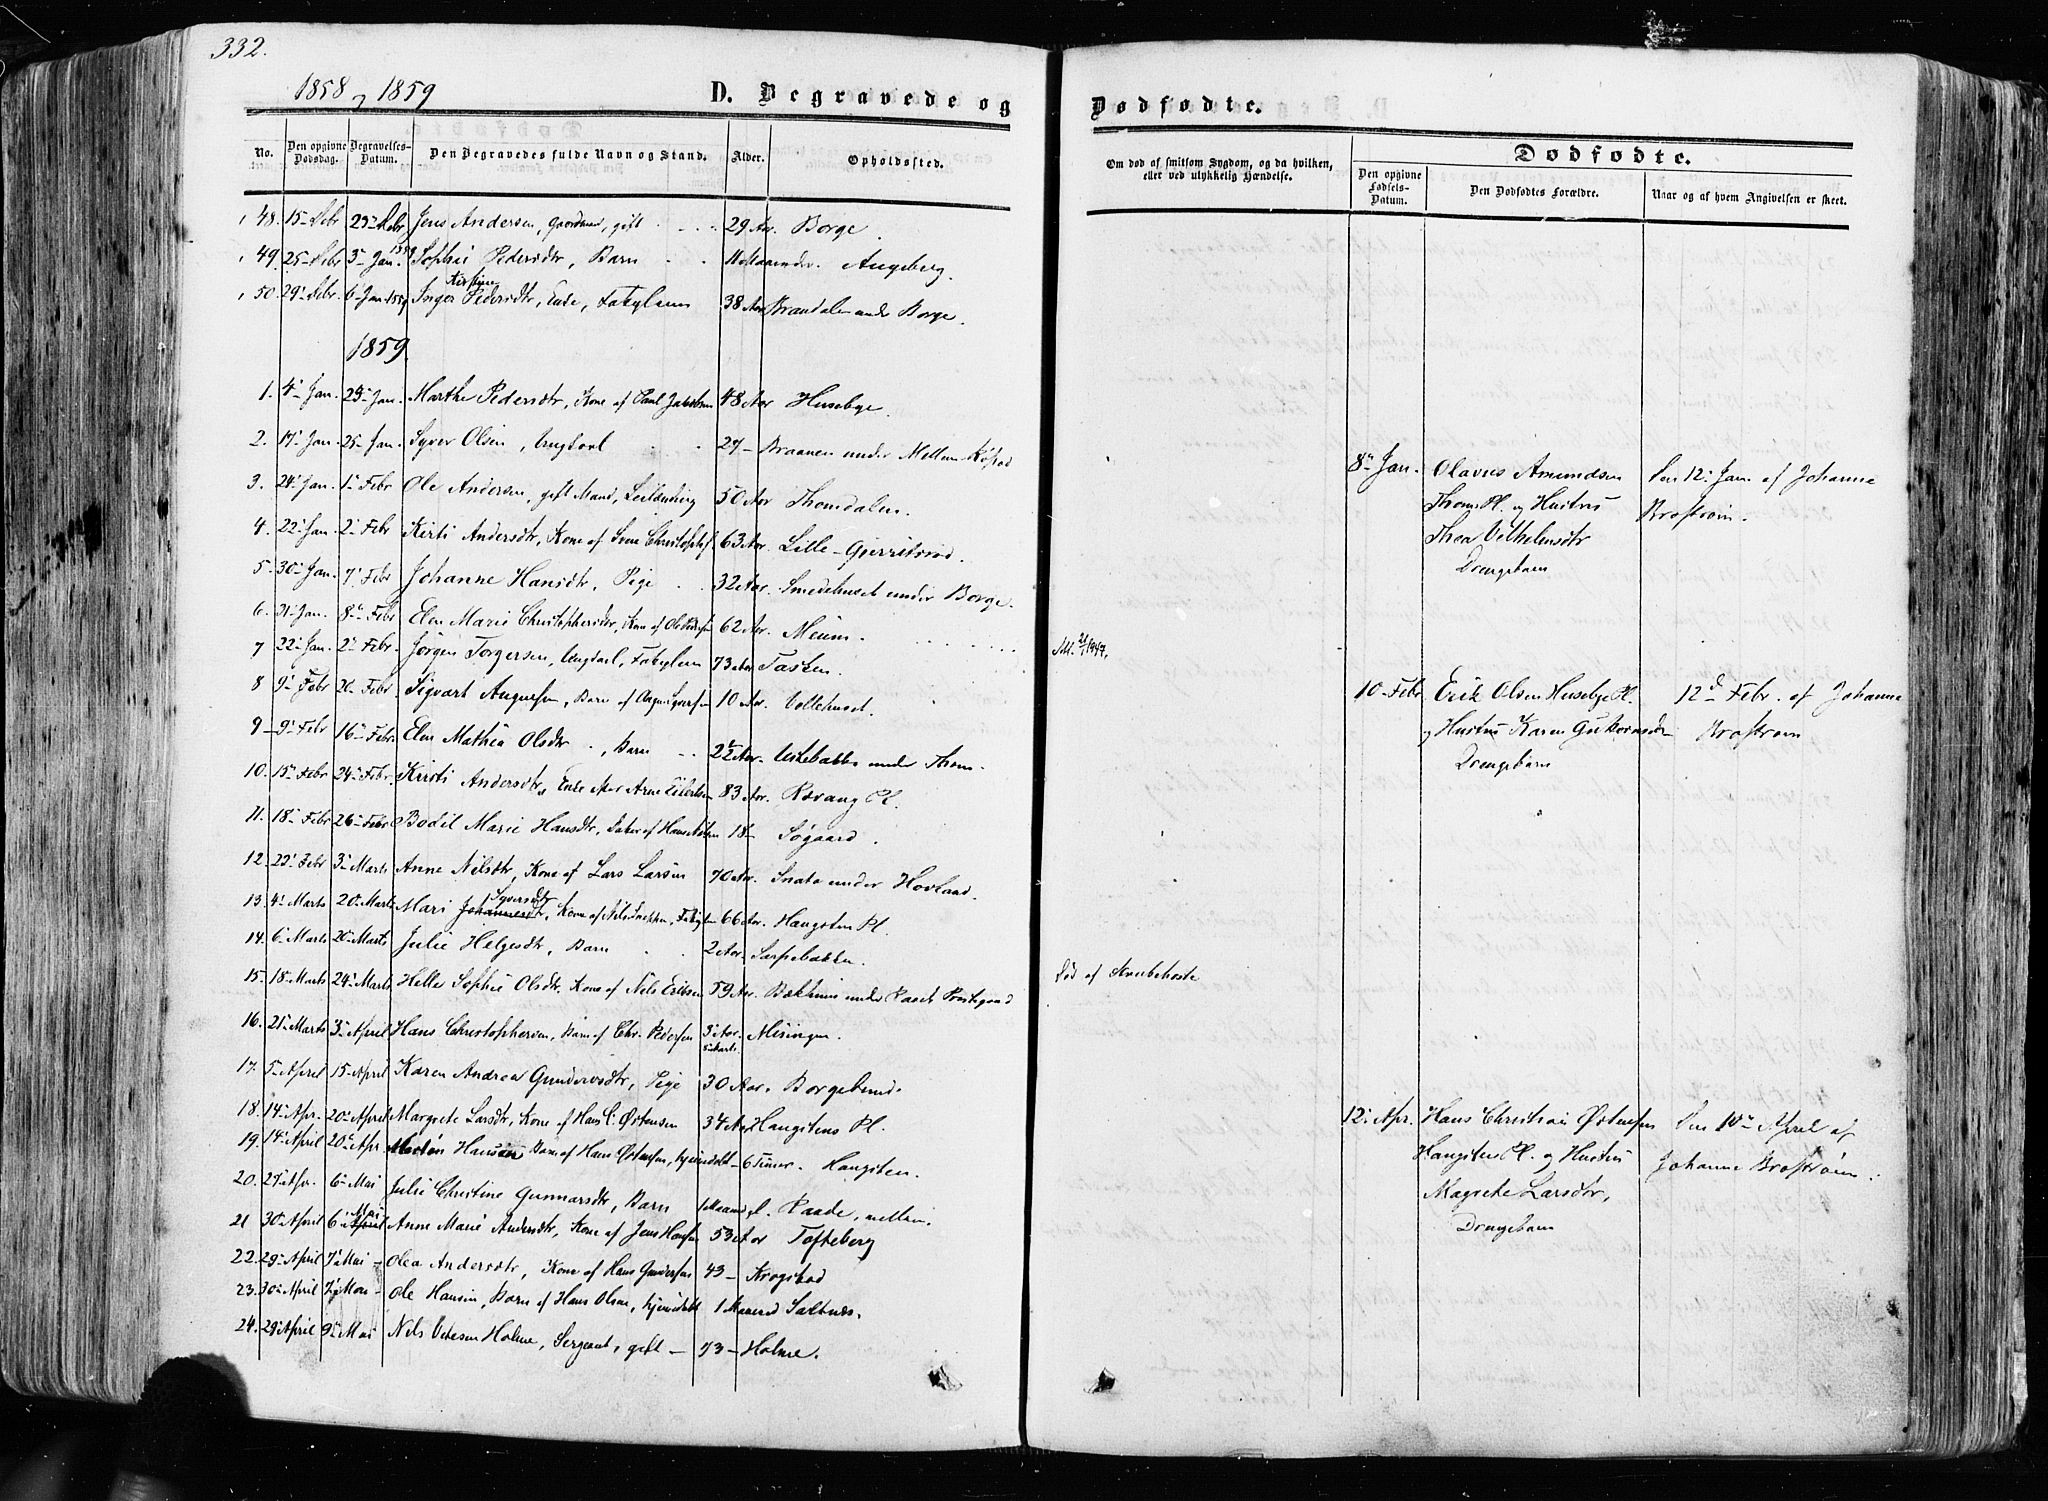 332.
1858 og 1859
D. Begravede og
Dødfødte.
No. Den opgivne Dødsdag. Begravelses-Datum. Den Begravedes fulde Navn og Stand. Alder. Opholdssted.
Om død af smitsom Sygdom, og da hvilken, eller ved ulykkelig Hændelse.
Dødfødte.
Den opgivne Fødsels-Datum. Den Dødfødtes Forældre. Naar og af hvem Angivelsen er skeet.
48. 15 Debr Jens Andersen, Gaardmand, gift 29 Aar. Borge
49. 25 Debr 3 Jan. 1859 Sophie Pedersdtr, Barn Augeberg.
50. 29 Debr. 6 Jan 1859 Inger Kirstine Pedersdtr, Enke, Fatlem 38 Aar under Borge.
1859
1. 4 Jan. Marthe Pedersdtr, Kone af Paul Jakobsen 48 Aar Husebye.
2. 17 Jan. 25 Jan. Syver Olsen, Ungkarl 27 Braanen under Mellem
3. 24 Jan. 1 Febr Ole Andersen, gift Mand, 50 Aar Thomdalen.
4. 22 Jan. 2 Febr Kirsti Andersdtr, Kone af 63 Aar. Lille-
5. 30 Jan. 7 Febr Johanne Hansdtr, Pige 32 Aar. Smedehuset under Borge.
6. 31 Jan. 8 Febr Elen Marie Christophersdtr, Kone af Ole 62 Aar. Meum.
7 22 Jan. 2 Febr. Jörgen Torgersen, Ungkarl, 73 Aar Tasken.
8 9 Febr Febr. Sigvart Augusten, Barn af 10 Aar. Voltehuset.
9 9 Febr 16 Febr. Elen Mathea Olsdtr, Barn Aar. under Thom.
10. 15 Febr 24 Febr. Kirsti Andersdtr, Enke efter Arne 83 Aar. Rævang Pl.
11. 18 Febr 26 Febr Bodil Marie Hansdtr, Datter af Hans 18 Søgaard.
12. 3 Marts Anne Nilsdtr, Kone af Lars Larsen 70 Aar. under Hovland.
13. 4 Marts 20 Marts Mari Syversdtr, Kone af 66 Aar. Haugsten Pl.
14. 6 Marts 20 Marts Julie Helgesdtr, Barn 2 Aar. Sarpebakken.
15. 18 Marts 24 Marts Helle Sophie Olsdtr. Kone af Nels Eriksen 59 Aar. under Raade Præstegaard
Død af
16. 21 Marts 3 April Hans Christophersen, Barn af Chr. Pedersen 3 Aar Missingen.
17. 5 April 15 April Karen Andrea Gundersdtr, Pige 30 Aar. Borgebund.
18. 14 Apr. 20 April Margrete Larsdtr, Kone af Hans C. Østensen 34 Aar Haugstens Pl.
19. 14 April 20 Apr Hansen Barn af Hans Østensen, hjemmedøbt 6 Timer. Haugsten.
20. 27 Apr. 6 Mai Julie Christine Gunnarsdtr, Barn Raade, mellem.
21 30 April 6 Mai Anne Marie Andersdtr, Kone af Jens Hansen 53 Aar Tofteberg
22. 29 April 7 Mai Olea Andersdtr, Kone af Hans Gundersen 43 Krogstad
23. 30 April 7 Mai Ole Hansen, Barn af Hans Olsen, hjemmedøbt 1 Maaned Saltnes.
24. 29 April 9 Mai Nils Holme, Sergeant, gift 73 Holme.
8 Jan. Olavus Amundsen
Thom Pl. og Hustru
Thea Vilhelmsdtr
Drengebarn
Den 12 Jan. af Johanne
Brostrøm.
10 Febr. Erik Olsen Husebye Pl.
og Hustru Karen Guttormsdtr
Drengebarn
12 Febr. af Johanne
Brostrøm
12 Apr. Hans Christian Østensen
Haugsten Pl. og Hustru
Magrete Larsdtr,
Drengebarn
Den April af
Johanne Brostrøm.